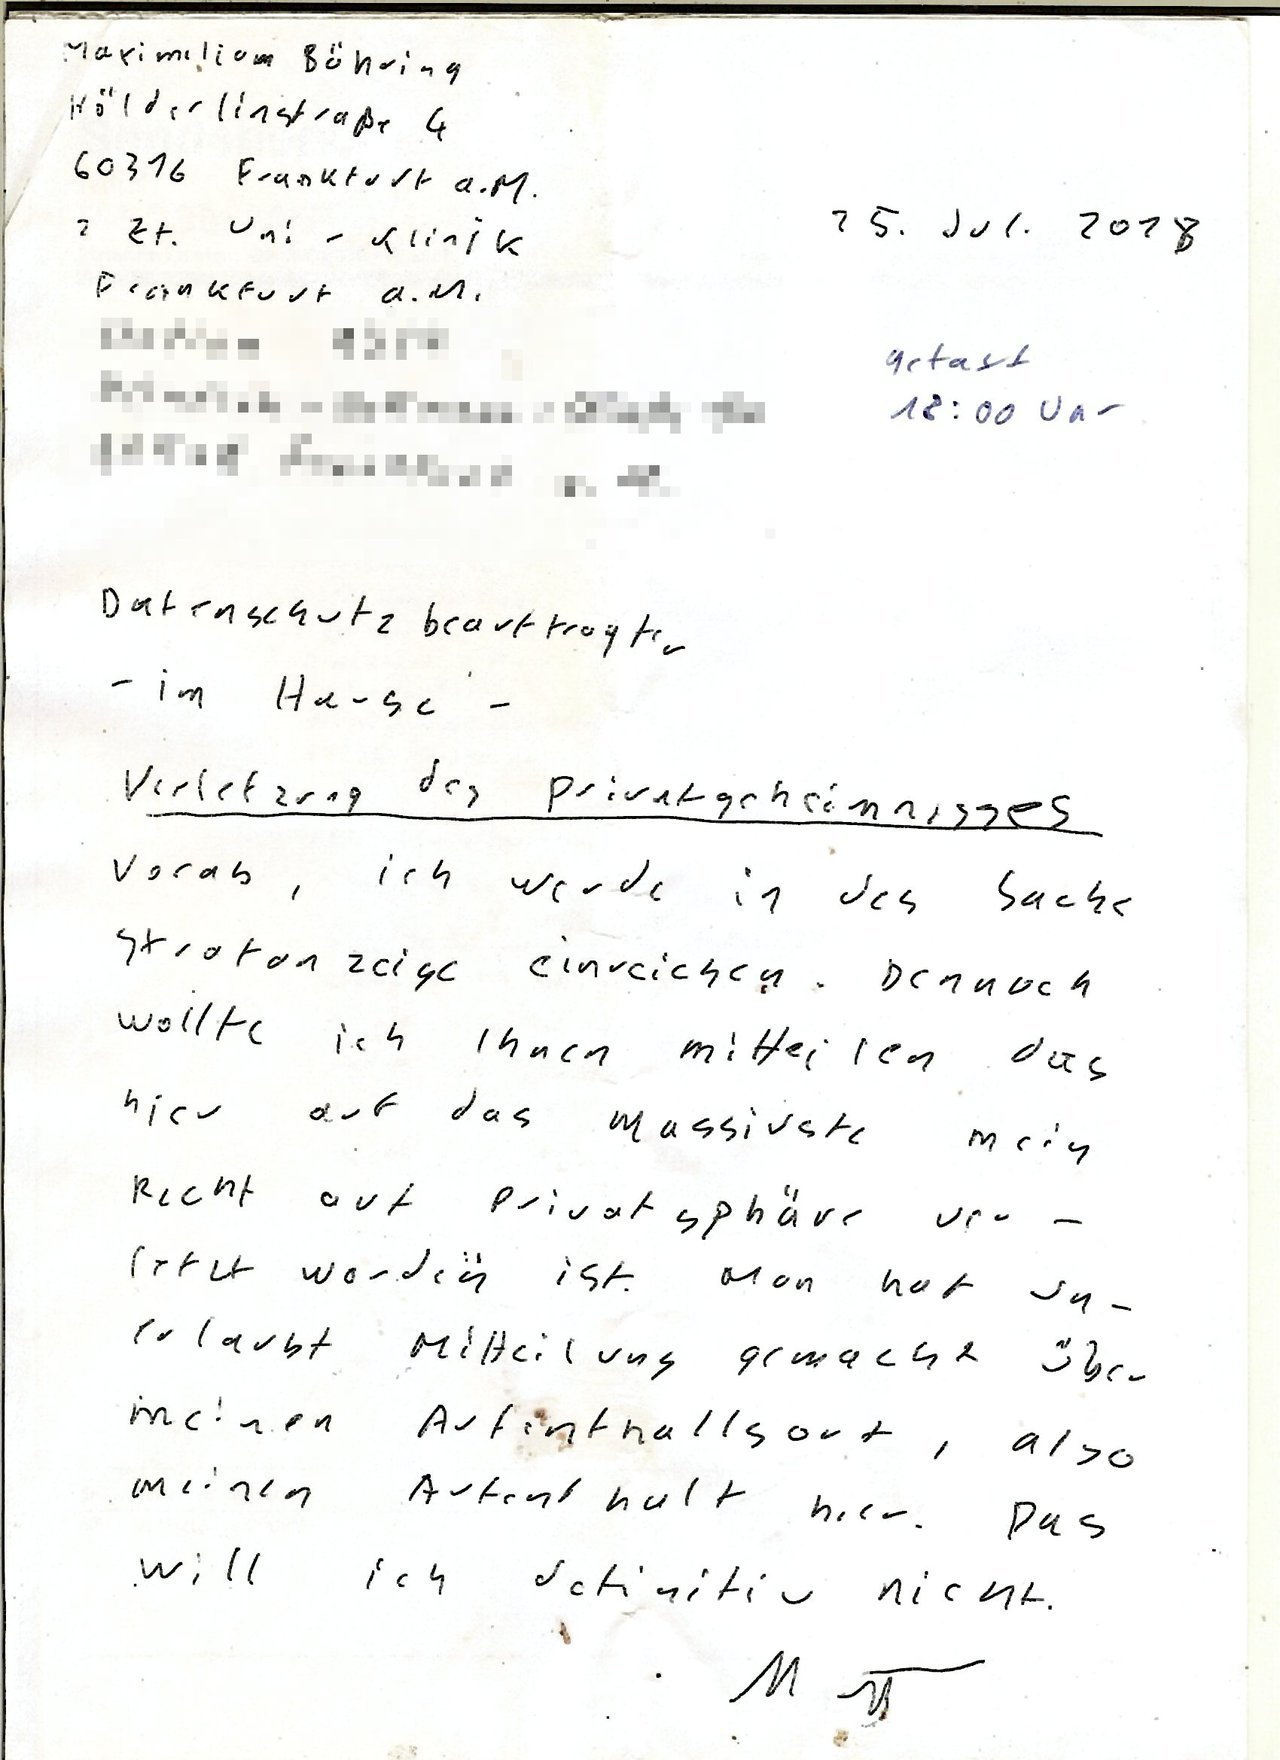 Maximilian Bähring
Hölderlinstraße 4
60316 Frankfurt a.M.
z Zt. Uni - Klinik
Frankfurt a.M.
25. Jul. 2018
gefasst
18:00 Uhr
Datenschutzbeauftragter
- im Hause -
Verletzung des Privatgeheimnisses
Vorab, ich werde in der Sache
Strafanzeige einreichen. Dennoch
wollte ich Ihnen mitteilen das
hier auf das Massivste mein
Recht auf Privatsphäre ver-
letzt worden ist. Man hat un-
erlaubt Mitteilung gemacht über
meinen Aufenthaltsort, also
meinen Aufenthalt hier. Das
will ich definitiv nicht.